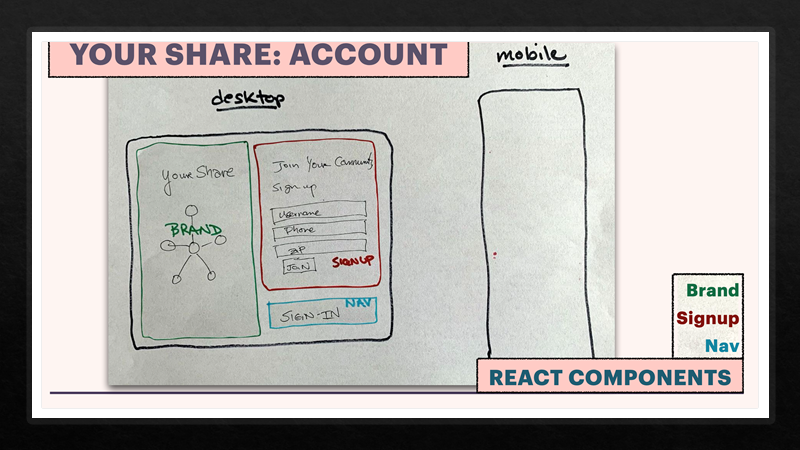 YOUR SHARE: ACCOUNT
mobile
desktop
Your Share
BRAND
Join Your Community
Sign up
Username
Phone
ZIP
JOIN
SIGNUP
NAV
SIGN-IN
Brand
Signup
Nav
REACT COMPONENTS